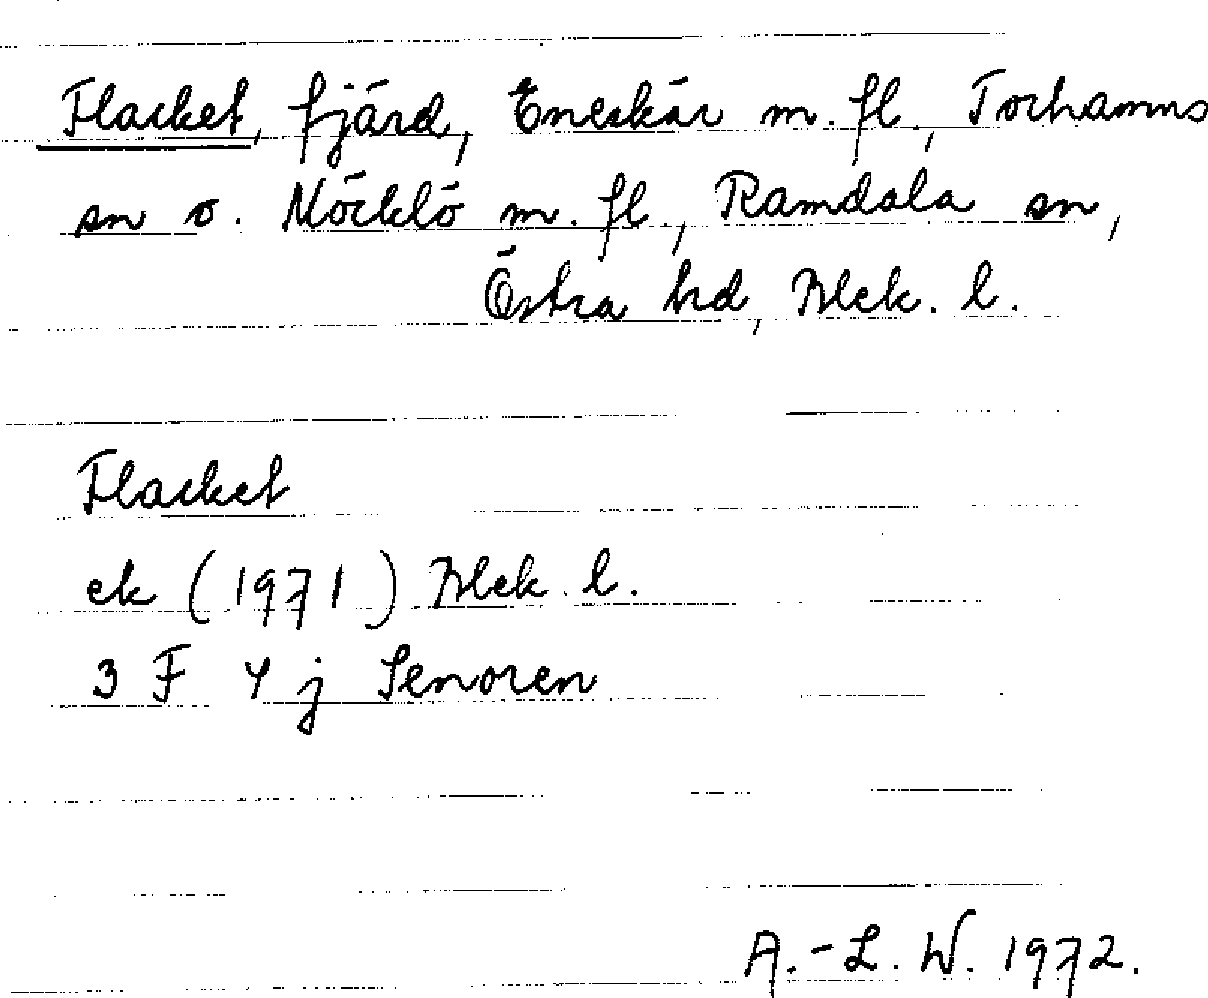 Flacket, fjärd, Eneskär m. fl., Torhamns
sn o. Möcklö m. fl., Ramdala sn,
Östra hd, Blek. l.
Flacket
ek (1971) Blek. l.
3 F 4 j Senoren
A.-L. W. 1972.